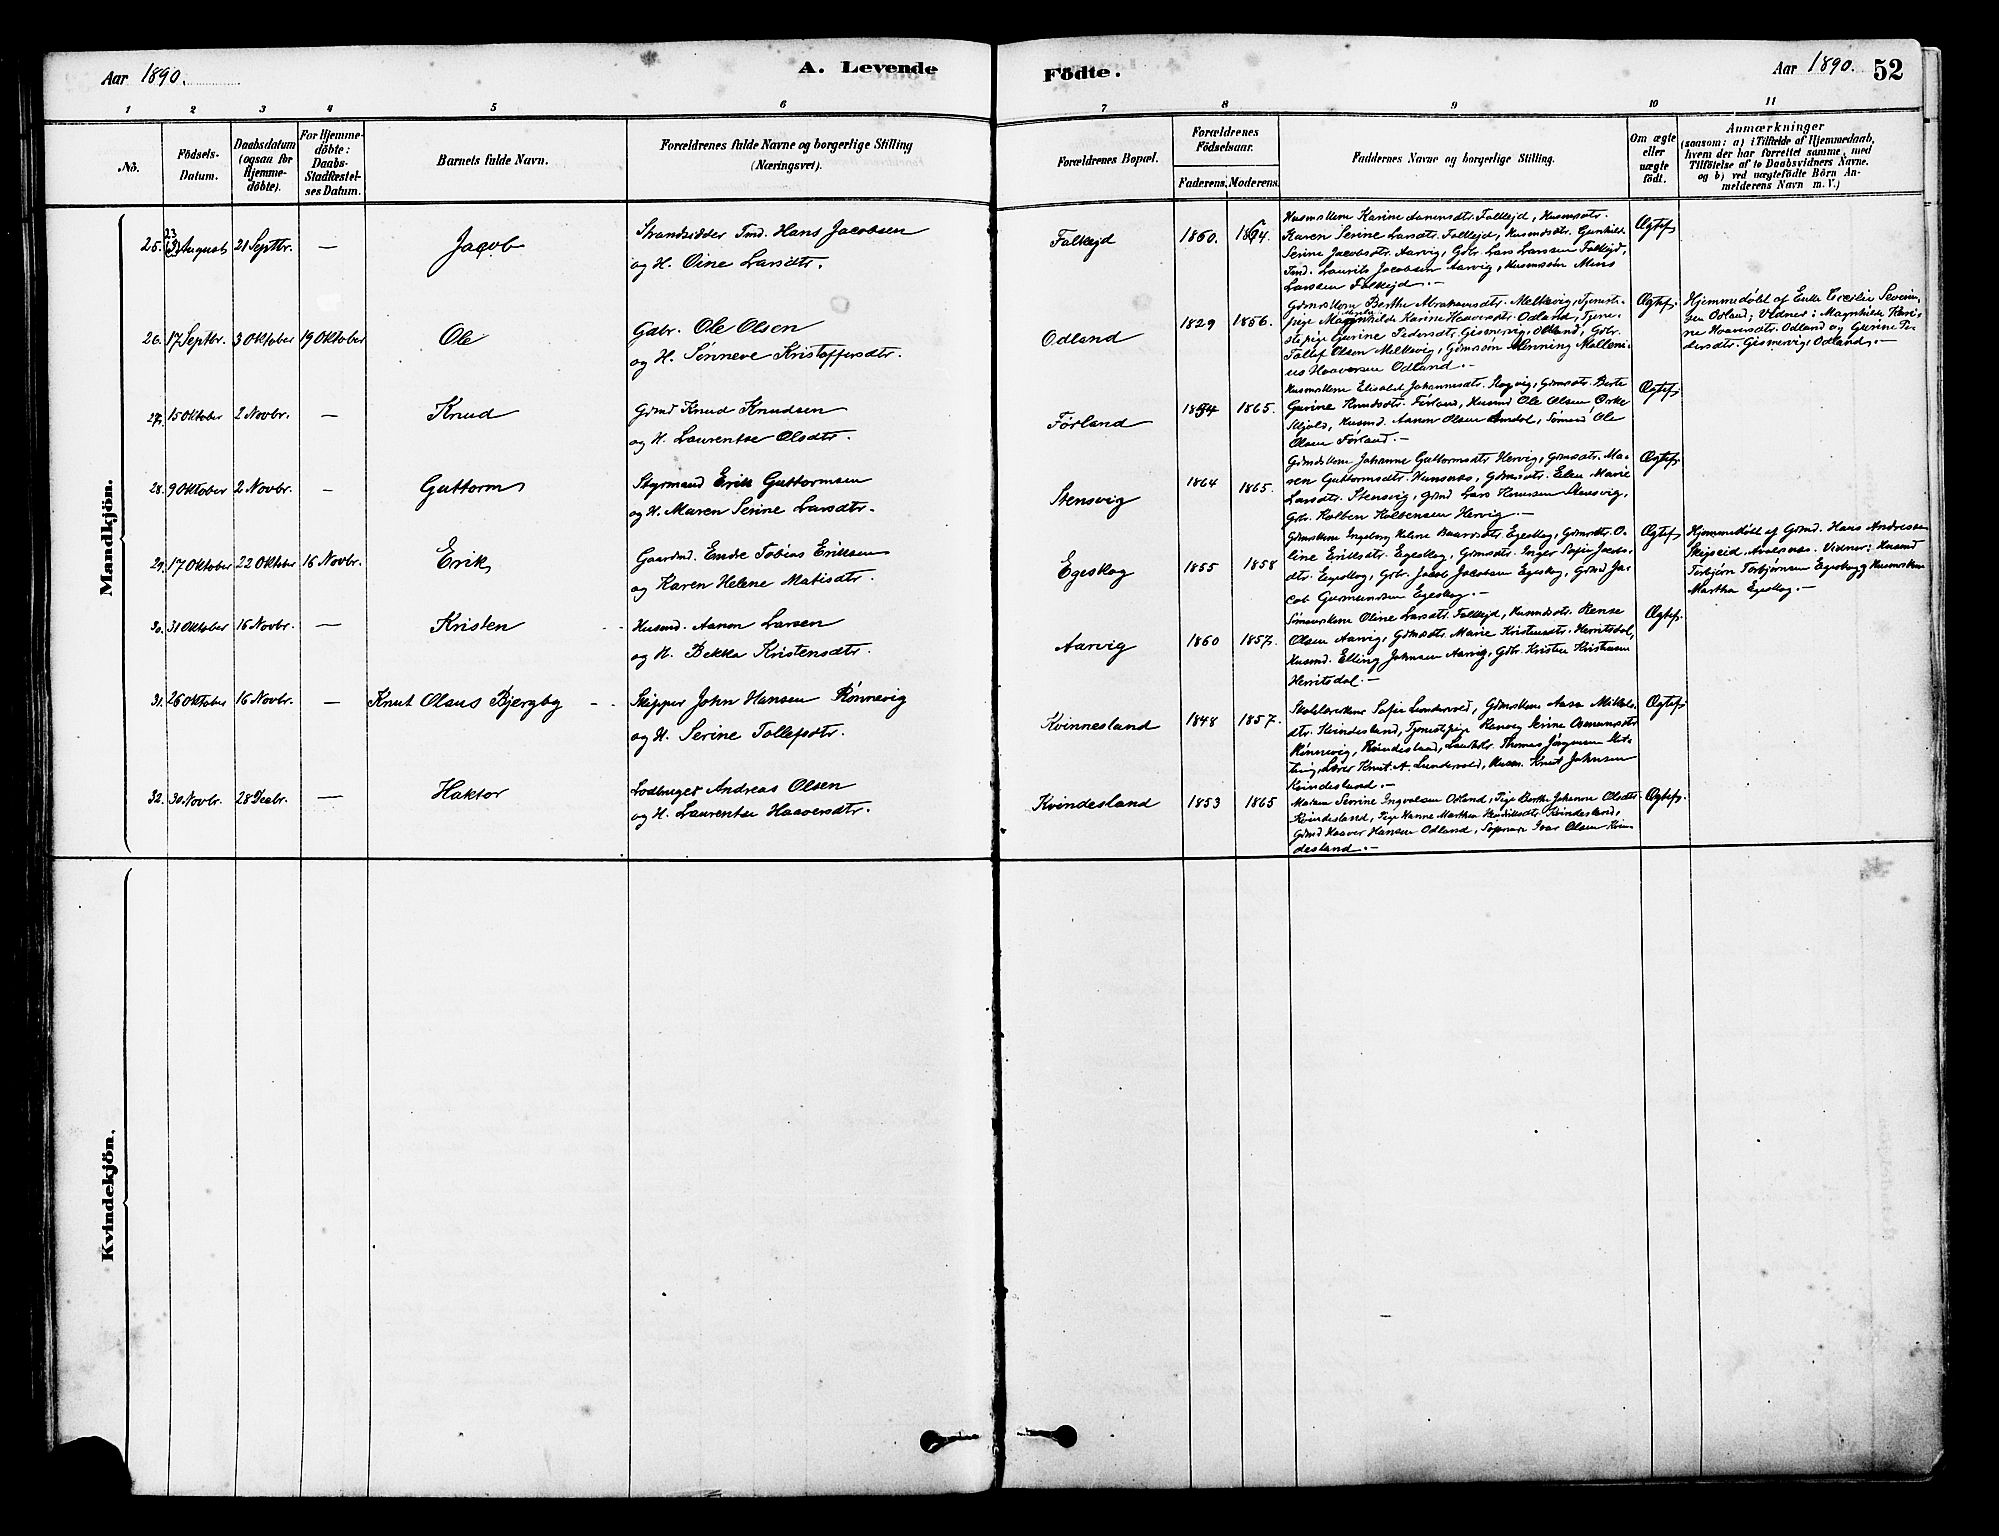 Aar 1890.
A. Levende
Födte.
Aar 1890.
52
1 2 3 4 5 6 7 8 9 10 11
No.
Födsels-
Datum.
Daabsdatum
(ogsaa for
Hjemme-
döbte).
For Hjemme-
döbte:
Daabs-
Stadfæstel-
ses Datum.
Barnets fulde Navn.
Forældrenes fulde Navne og borgerlige Stilling
(Næringsvei).
Forældrenes Bopæl.
Forældrenes
Födselsaar.
Faderens. Moderens.
Faddernes Navne og borgerlige Stilling.
Om ægte
eller
uægte
født.
Anmærkninger
(saasom: a) i Tilfælde af Hjemmedaab,
hvem der har forrettet samme, med
Tilföielse af to Daabsvidners Navne.
og b) ved uægtefödte Börn An-
melderens Navn m. V.)
Mandkjön.
25. 23 August 21 Septbr. — Jacob
Strandsidder Tmd. Hans Jacobsen
og H. Oine Larsdtr.
Falkejd 1850. 1854.
Husmdskone Karine Aanensdtr. Falkejd, Husmdsdtr.
Karen Serine Larsdtr. Falkejd, Husmdsdtr. Gunhild
Serine Jacobsdtr. Aarvig, Gdbr. Lars Larssen Falkejd,
Tmd. Laurits Jacobsen Aarvig, Husmdsøn Mons
Larssen Falkejd. —
Ægtef.
26. 17 Septbr. 3 Oktober 19 Oktober Ole
Gdbr. Ole Olsen
og H. Sønneve Kristoffersdtr.
Odland 1829 1856.
Gdmdskone Berthe Abrahamsdtr. Melkevig, Tjeneste-
pige Magnhilde Karine Haaversdtr. Odland, Tjene-
stepige Gurine Pedersdtr. Gismervig, Odland, Gbr.
Tollef Olsen Melkevig, Gdmdsøn Henning Malleni-
us Haaversen Odland. —
Ægtef.
Hjemmedøbt af Enke Cecilie Severin-
sen Odland; Vidner: Magnhilde Kari-
ne Haaversdtr. Odland og Gurine Pe-
dersdtr. Gismervig, Odland. —
27. 15 Oktober 2 Novbr. — Knud
Gdmd Knud Knudsen
og H. Laurentse Olsdtr.
Førland 1854 1865.
Husmdskone Elisabet Johannesdtr. Røgvig, Gdmdsdtr. Berte
Gurine Knudsdtr. Førland, Husmd Ole Olsen Ørke
Skjold, Husmd. Aanen Olsen Amdal, Sømand Ole
Olsen Førland. —
Ægtef.
28. 9 Oktober 2 Novbr. — Guttorm
Styrmand Erik Guttormsen
og H. Maren Serine Larsdtr.
Stensvig 1864 1865.
Gdmdskone Johanne Guttormsdtr. Hervig, Gdmdsdtr. Ma-
ren Guttormsdtr. Hunsnæs, Gdmdsdtr. Elen Marie
Larsdtr. Stensvig, Gdmd Lars Knussen Stensvig,
Gdbr. Kolben Kolbensen Hervig. —
Ægtef.
29. 17 Oktober 22 Oktober 16 Novbr. Erik
Gaardmd. Endre Tobias Eriksen
og Karen Helene Matisdtr.
Egeskog 1855 1858
Gdmdskone Ingeborg Helene Baardsdtr. Egeskog, Gdmdsdtr. O-
line Eriksdtr. Egeskog, Gdmdsdtr. Inger Sofie Jacobs-
dtr. Egeskog, Gdbr. Jacob Jacobsen Egeskog, Gdmd Ja-
cob Gudmundsen Egeskog. —
Ægtef.
Hjemmedøbt af Gdmd. Hans Andreassen
Skigseid, Avelsnæs. Vidner: Husmd
Torbjørn Torbjørnsen Egeskog og Husmdskone
Martha Egeskog. —
30. 31 Oktober 16 Novbr. — Kristen
Husmd. Aanon Larsen
og H. Bekka Kristensdtr.
Aarvig 1860 1857.
Sømdskone Oline Larsdtr. Falkejd, Husmdsdtr. Rense
Olsen Aarvig, Gdmdsdtr. Marie Kristensdtr. Herritsdal,
Husmd. Elling Johnsen Aarvig, Gdbr. Kristen Kristensen
Herritsdal. —
Ægtef.
31. 26 Oktober 16 Novbr. — Knut Olaus Bjergby
Skipper John Hansen Rønnevig
og H. Serine Tollefsdtr.
Kvinnesland 1848 1857.
Skolelærerkone Sofie Lundervold, Gdmdskone Aasa Mikkels-
dtr. Kvindesland, Tjenestepige Ranveg Serine Osmundsdtr
Rønnevig, Kvindesland, Landhdlr. Thomas Jørgensen
Lærer Knut A. Lundervold, Husm. Knut Johnsen
Kvindesland. —
Ægtef.
32. 30 Novbr. 28 Decbr. — Haktor
Lodbruger Andreas Olsen
og H. Laurentse Haaversdtr.
Kvindesland 1853 1865
Madam Serine Ingvalsen Odland, Pige Berthe Johanne Olsdtr.
Kvindesland, Pige Hanne Marthea Henriksdtr. Kvindesland,
Gdmd Haaver Hansen Odland, Sømand Ivar Olsen Kvin-
desland. —
Ægtef.
Kvindekjön.